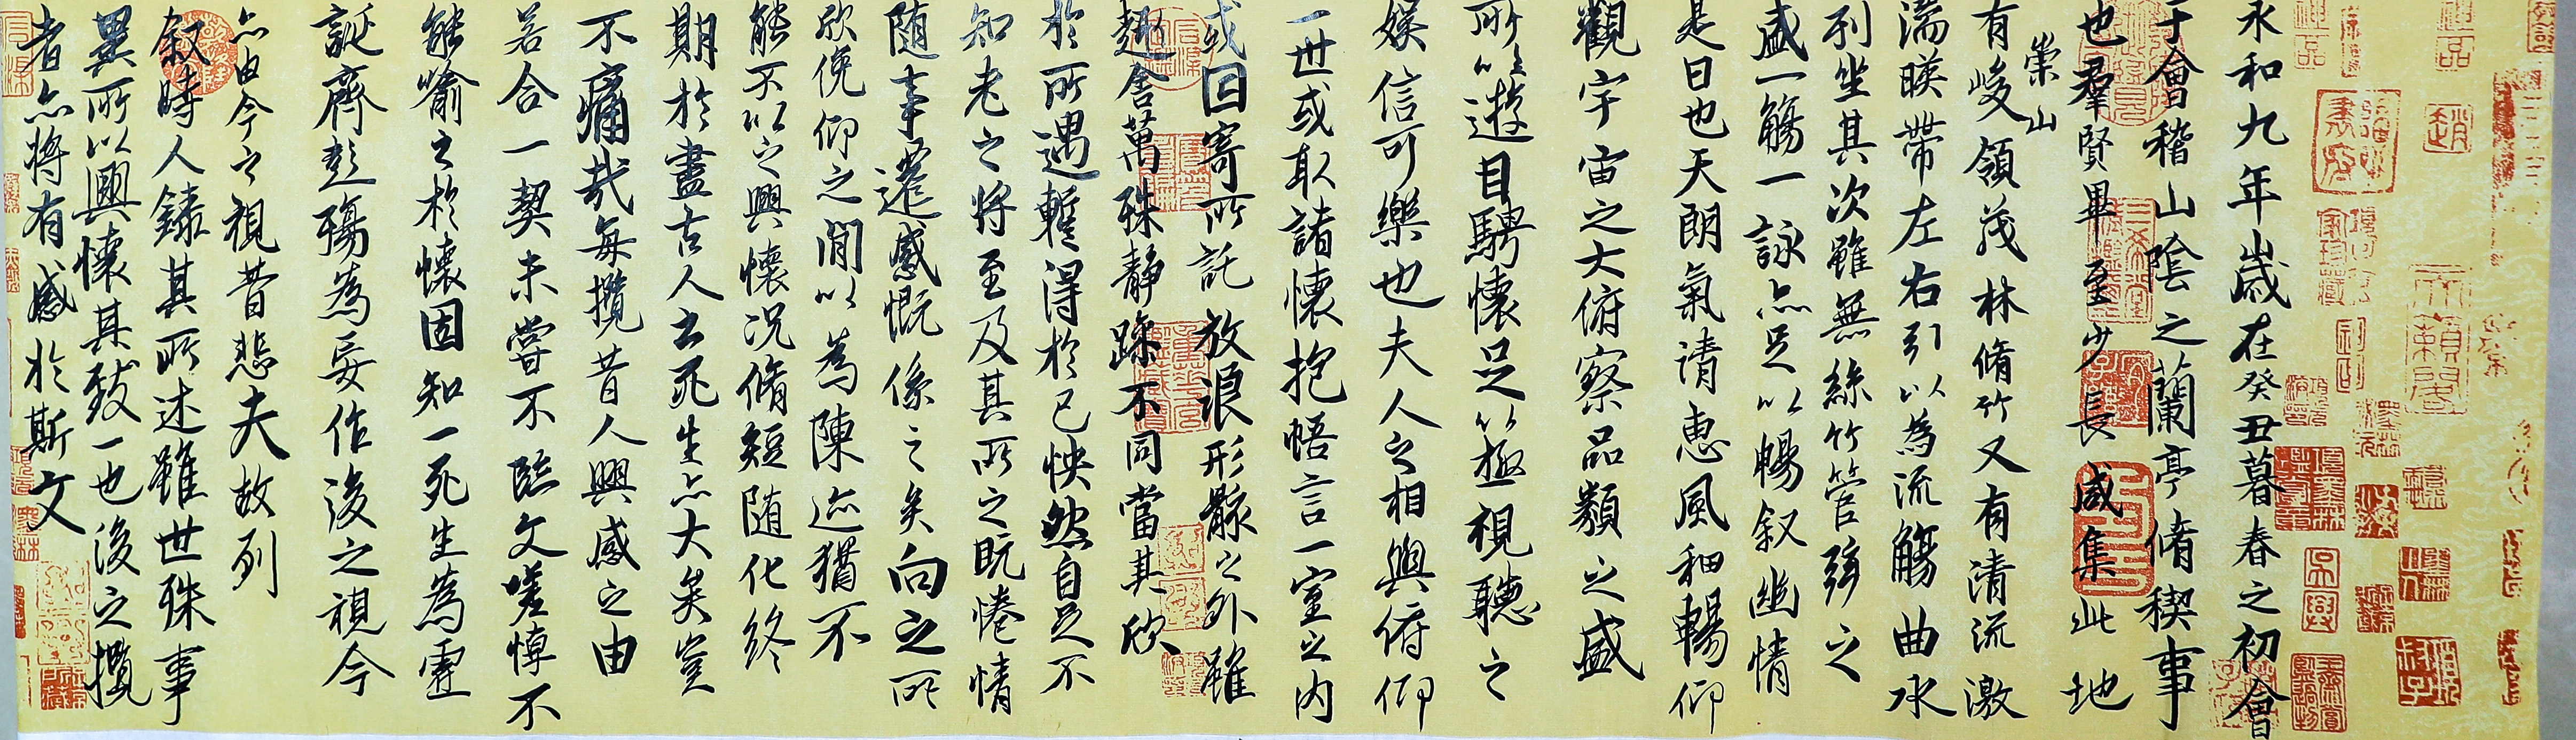 永和九年歲在癸丑暮春之初會
于會稽山陰之蘭亭脩稧事
也羣賢畢至少長咸集此地
崇山
有峻領茂林脩竹又有清流激
湍暎帶左右引以為流觴曲水
列坐其次雖無絲竹管弦之
盛一觴一詠亦足以暢叙幽情
是日也天朗氣清惠風和暢仰
觀宇宙之大俯察品類之盛
所以遊目騁懷足以極視聽之
娛信可樂也夫人之相與俯仰
一世或取諸懷抱悟言一室之内
或因寄所託放浪形骸之外雖
趣舍萬殊静躁不同當其欣
於所遇暫得於己怏然自足不
知老之將至及其所之既惓情
随事遷感慨係之矣向之所
欣俛仰之閒以為陳迹猶不
能不以之興懷況脩短随化終
期於盡古人云死生亦大矣豈
不痛哉每攬昔人興感之由
若合一契未嘗不臨文嗟悼不
能喻之於懷固知一死生為虛
誕齊彭殤為妄作後之視今
亦由今之視昔悲夫故列
叙時人錄其所述雖世殊事
異所以興懷其致一也後之攬
者亦將有感於斯文